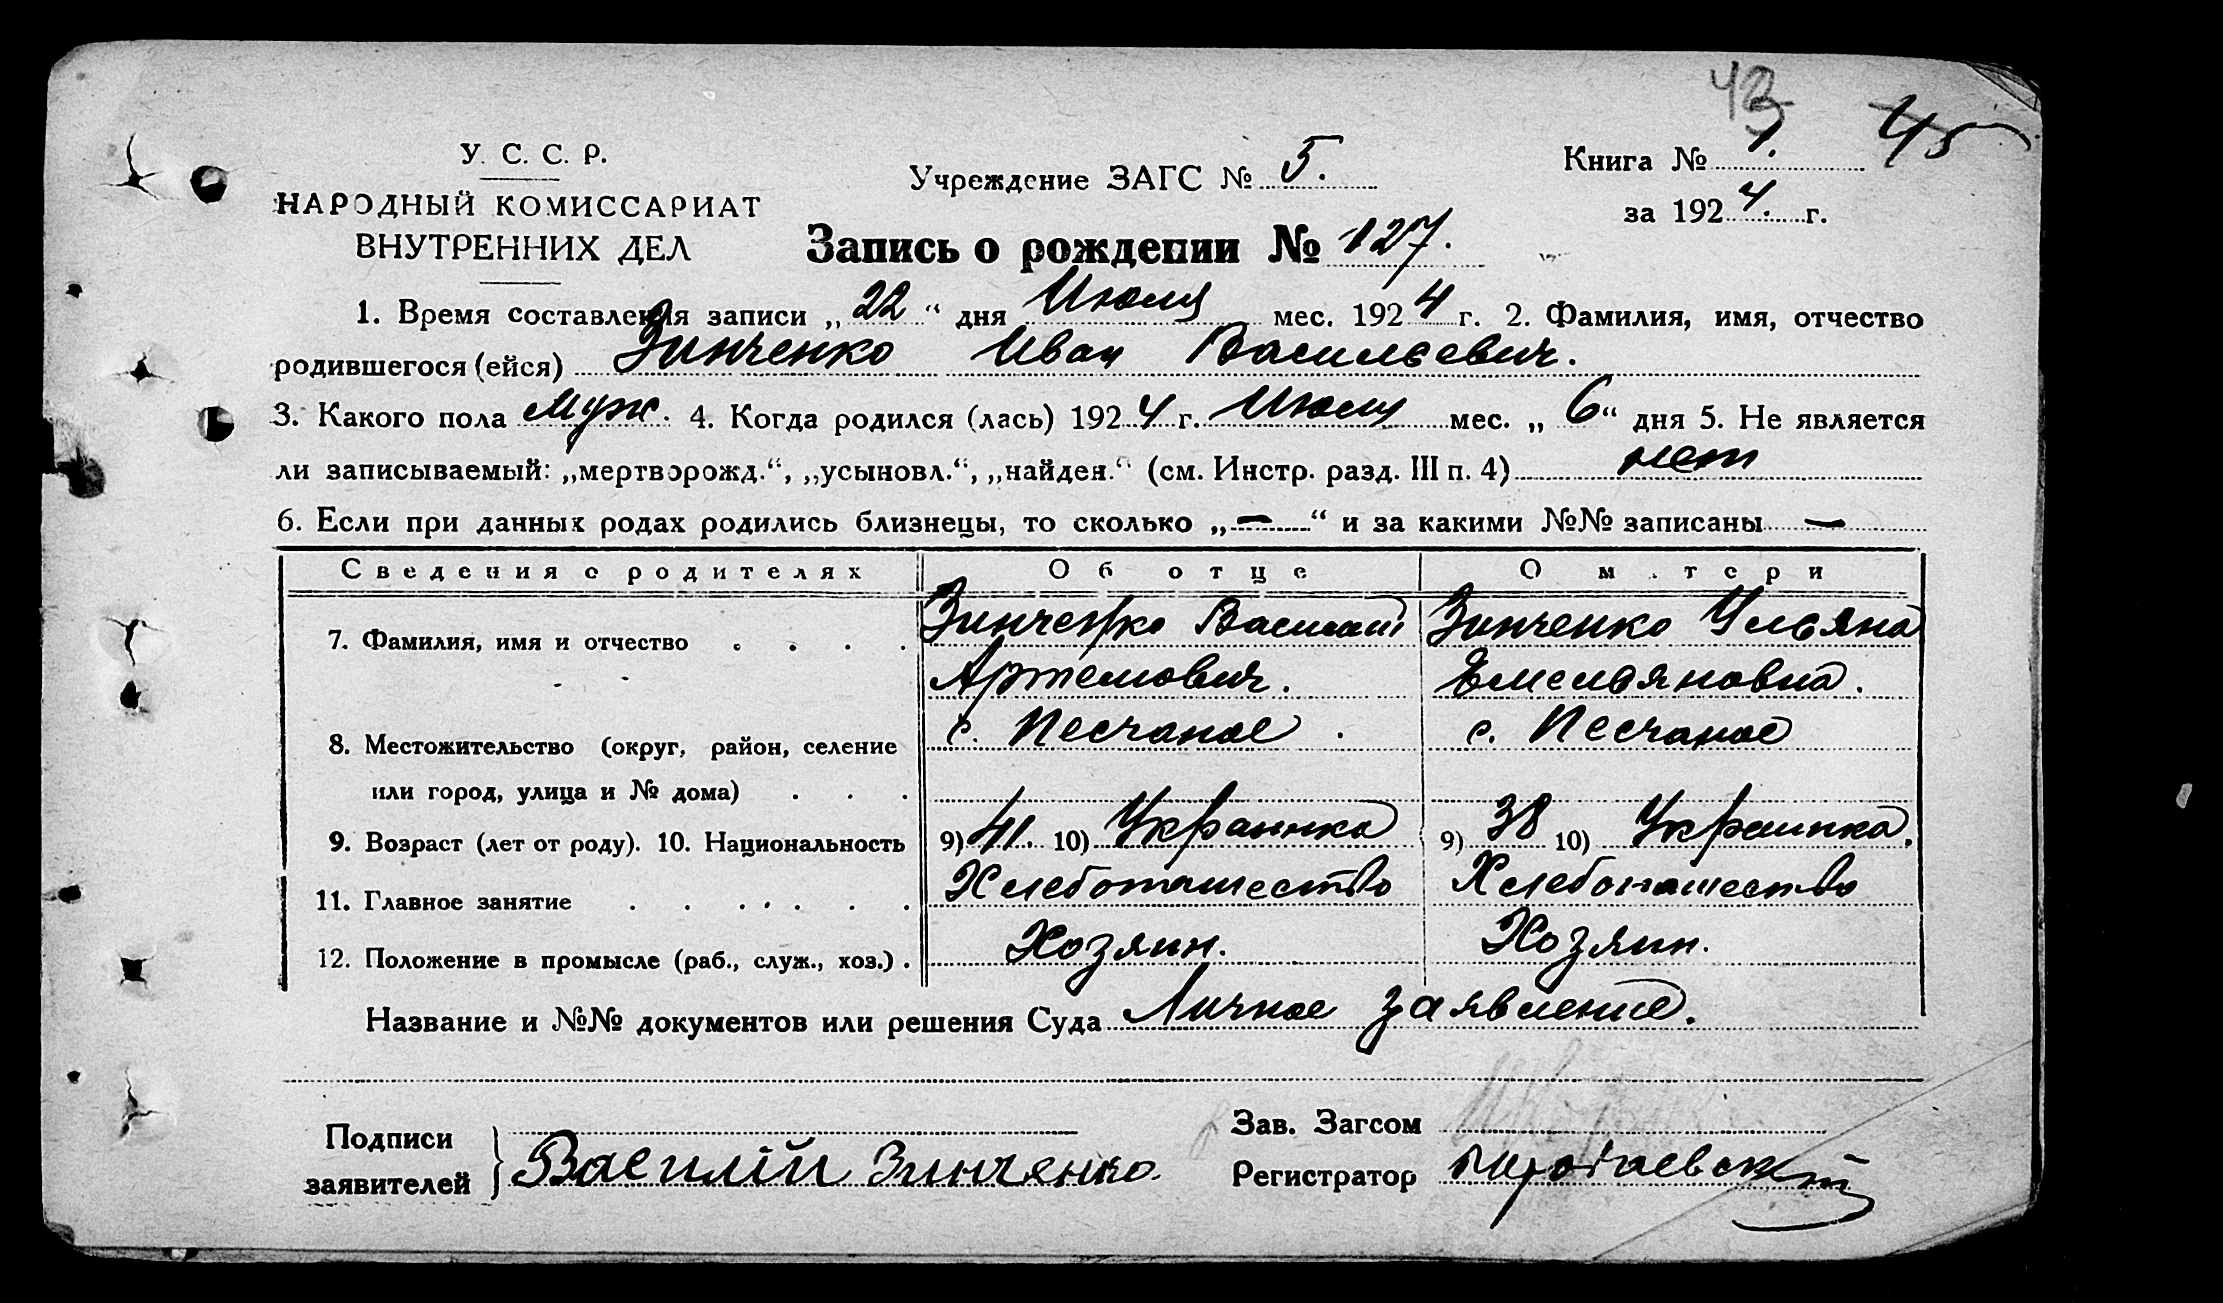 43
45
У. С. С. Р.
НАРОДНЫЙ КОМИССАРИАТ
ВНУТРЕННИХ ДЕЛ
Учреждение ЗАГС № 5.
Книга № 1.
за 1924. г.
Запись о рождении № 127.
1. Время составления записи „22“ дня Июля мес. 1924 г. 2. Фамилия, имя, отчество
родившегося (ейся) Зинченко Иван Васильевич.
3. Какого пола Муж. 4. Когда родился (лась) 1924 г. Июля мес. „6“ дня 5. Не является
ли записываемый: „мертворожд.“, „усыновл.“, „найден.“ (см. Инстр. разд. III п. 4) нет
6. Если при данных родах родились близнецы, то сколько „—“ и за какими №№ записаны —
Сведения о родителях Об отце О матери
7. Фамилия, имя и отчество . . . . Зинченко Василий Зинченко Ульяна
Артемович. Емельяновна.
8. Местожительство (округ, район, селение с. Песчаное . с. Песчаное
или город, улица и № дома) . . .
9. Возраст (лет от роду). 10. Национальность 9) 41. 10) Украинка 9) 38 10) Украинка.
11. Главное занятие . . . . . . Хлебопашество Хлебопашество
12. Положение в промысле (раб., служ., хоз.) . Хозяин. Хозяин.
Название и №№ документов или решения Суда Личное заявление.
Подписи
заявителей } Василій Зинченко.
Зав. Загсом
Регистратор